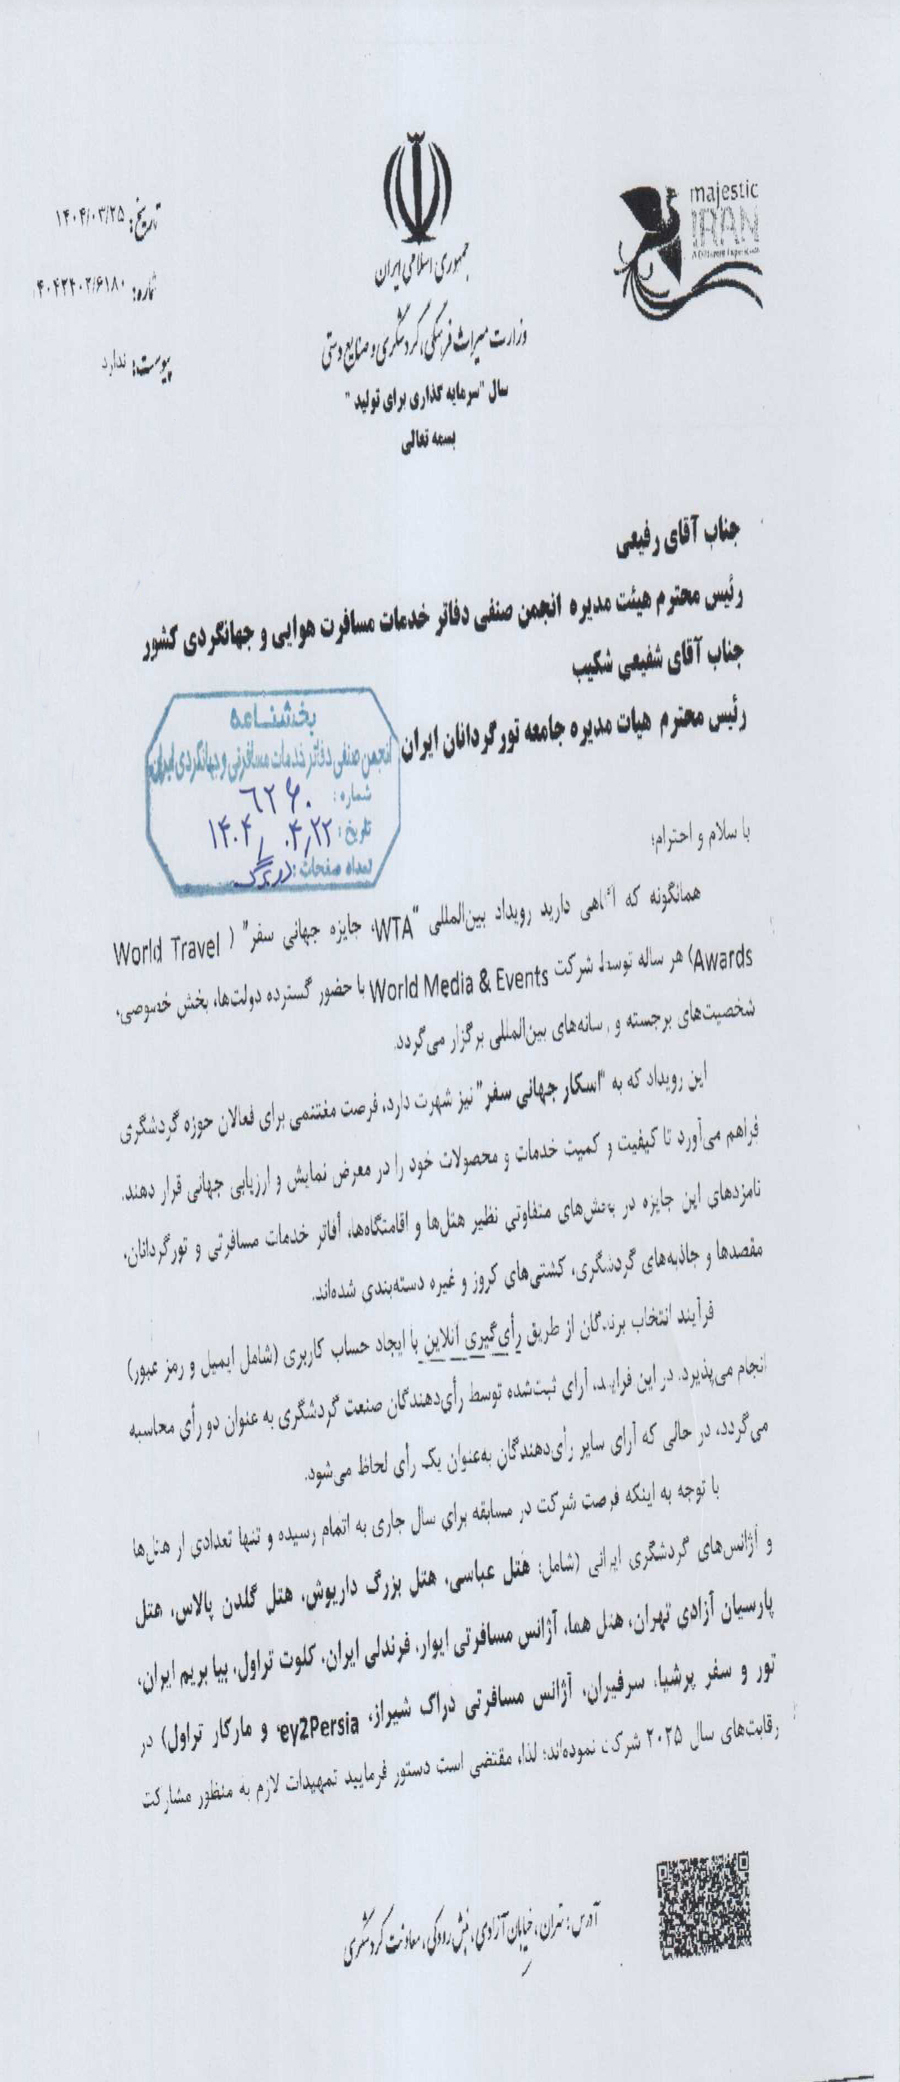 majestic
IRAN
جمهوری اسلامی ایران
وزارت میراث فرهنگی، گردشگری و صنایع دستی
سال "سرمایه گذاری برای تولید"
بسمه تعالی
تاریخ: ۱۴۰۴/۰۳/۲۵
شماره: ۴۰۴۲۴۰۲/۶۱۸۰
پیوست: ندارد
جناب آقای رفیعی
رئیس محترم هیئت مدیره انجمن صنفی دفاتر خدمات مسافرت هوایی و جهانگردی کشور
جناب آقای شفیعی شکیب
رئیس محترم هیات مدیره جامعه تورگردانان ایران
بخشنامه
انجمن صنفی دفاتر خدمات مسافرتی و جهانگردی ایران
شماره: ۶۲۶۰
تاریخ: ۱۴۰۴/۰۴/۲۲
تعداد صفحات: دو برگ
با سلام و احترام؛
همانگونه که آگاهی دارید رویداد بین‌المللی "WTA، جایزه جهانی سفر" (World Travel
Awards) هر ساله توسط شرکت World Media & Events با حضور گسترده دولت‌ها، بخش خصوصی،
شخصیت‌های برجسته و رسانه‌های بین‌المللی برگزار می‌گردد.
این رویداد که به "اسکار جهانی سفر" نیز شهرت دارد، فرصت مغتنمی برای فعالان حوزه گردشگری
فراهم می‌آورد تا کیفیت و کمیت خدمات و محصولات خود را در معرض نمایش و ارزیابی جهانی قرار دهند.
نامزدهای این جایزه در بخش‌های متفاوتی نظیر هتل‌ها و اقامتگاه‌ها، آفاتر خدمات مسافرتی و تورگردانان،
مقصدها و جاذبه‌های گردشگری، کشتی‌های کروز و غیره دسته‌بندی شده‌اند.
فرآیند انتخاب برندگان از طریق رأی‌گیری آنلاین با ایجاد حساب کاربری (شامل ایمیل و رمز عبور)
انجام می‌پذیرد. در این فرایند، آرای ثبت‌شده توسط رأی‌دهندگان صنعت گردشگری به عنوان دو رأی محاسبه
می‌گردد، در حالی که آرای سایر رأی‌دهندگان به‌عنوان یک رأی لحاظ می‌شود.
با توجه به اینکه فرصت شرکت در مسابقه برای سال جاری به اتمام رسیده و تنها تعدادی از هتل‌ها
و آژانس‌های گردشگری ایرانی (شامل: هتل عباسی، هتل بزرگ داریوش، هتل گلدن پالاس، هتل
پارسیان آزادی تهران، هتل هما، آژانس مسافرتی ایوار، فرندلی ایران، کلوت تراول، بیا بریم ایران،
تور و سفر پرشیا، سرفیران، آژانس مسافرتی دراک شیراز، ey2Persia، و مارکار تراول) در
رقابت‌های سال ۲۰۲۵ شرکت نموده‌اند؛ لذا، مقتضی است دستور فرمایید تمهیدات لازم به منظور مشارکت
آدرس: تهران، خیابان آزادی، نبش رودکی، معاونت گردشگری